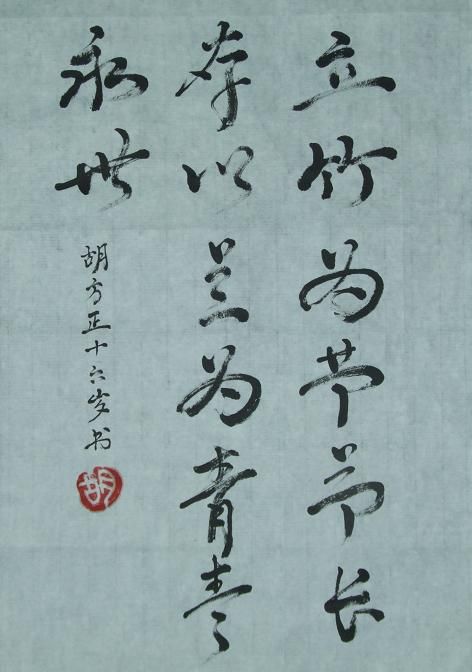 立竹为节节长
存以兰为青青
永世
胡方正十六岁书
胡